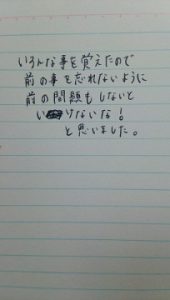 いろんな事を覚えたので
前の事を忘れないように
前の問題もしないと
いけないな!
と思いました。